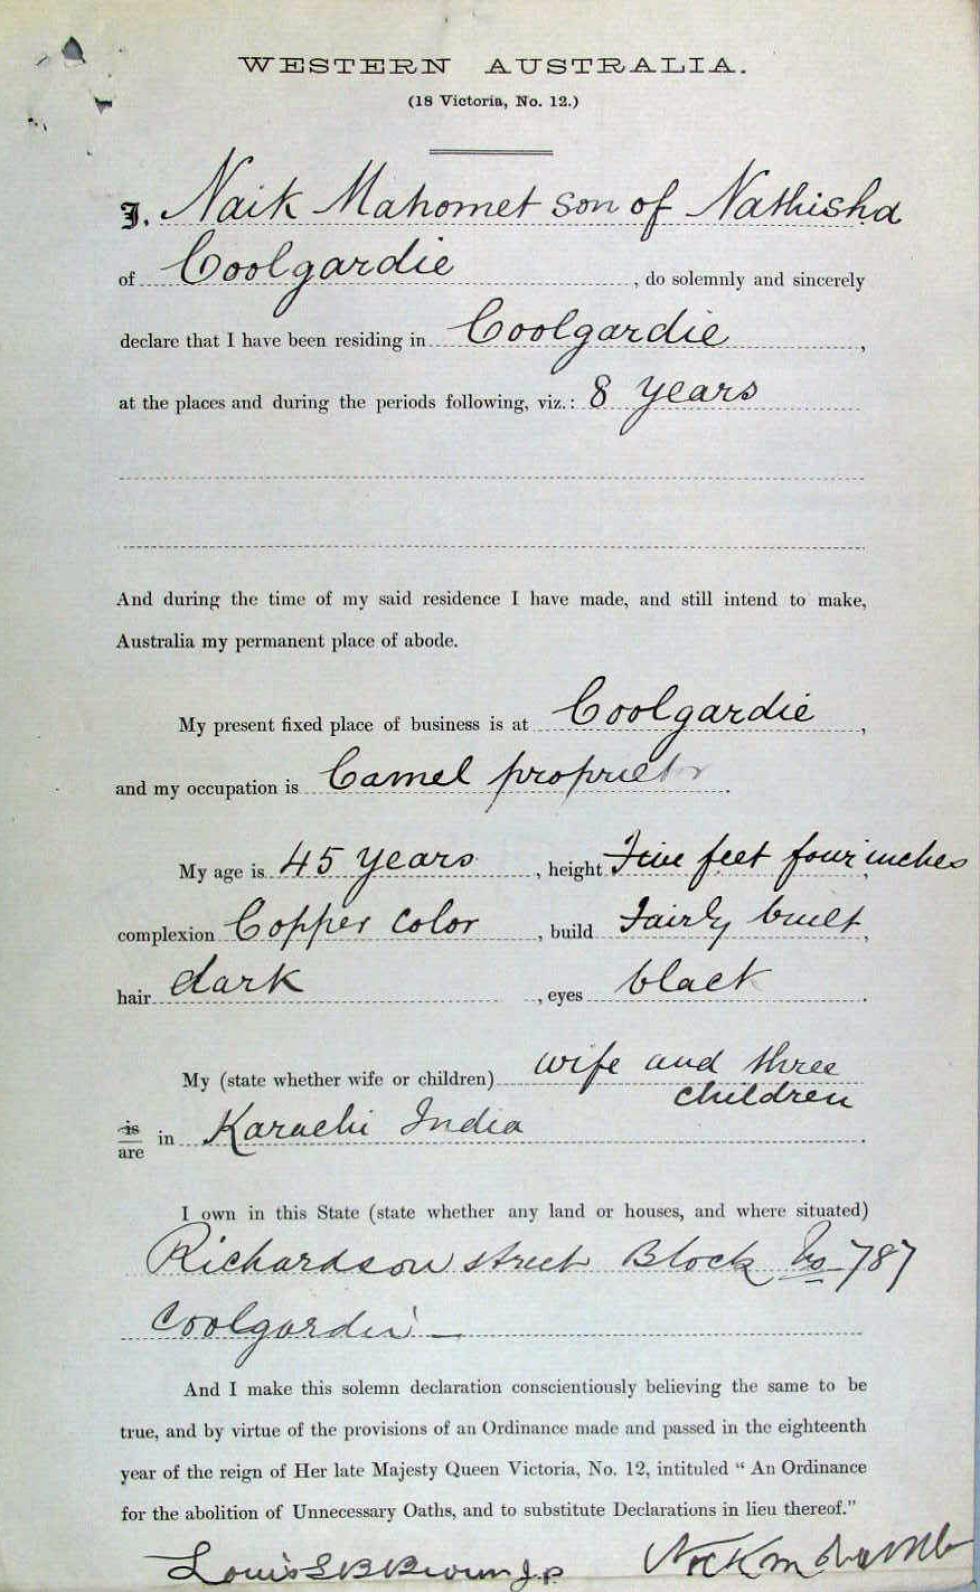 WESTERN AUSTRALIA.
(18 Victoria, No. 12.)
I, Naik Mahomet son of Nathisha
of Coolgardie, do solemnly and sincerely
declare that I have been residing in Coolgardie,
at the places and during the periods following, viz.: 8 years
And during the time of my said residence I have made, and still intend to make,
Australia my permanent place of abode.
My present fixed place of business is at Coolgardie,
and my occupation is Camel proprietor.
My age is 45 years, height Five feet four inches,
complexion Copper Color, build Fairly built,
hair dark, eyes black.
My (state whether wife or children) wife and three
children
is
are in Karachi India.
I own in this State (state whether any land or houses, and where situated)
Richardson street Block No 787
Coolgardie
And I make this solemn declaration conscientiously believing the same to be
true, and by virtue of the provisions of an Ordinance made and passed in the eighteenth
year of the reign of Her late Majesty Queen Victoria, No. 12, intituled “ An Ordinance
for the abolition of Unnecessary Oaths, and to substitute Declarations in lieu thereof.”
Louis J.P.